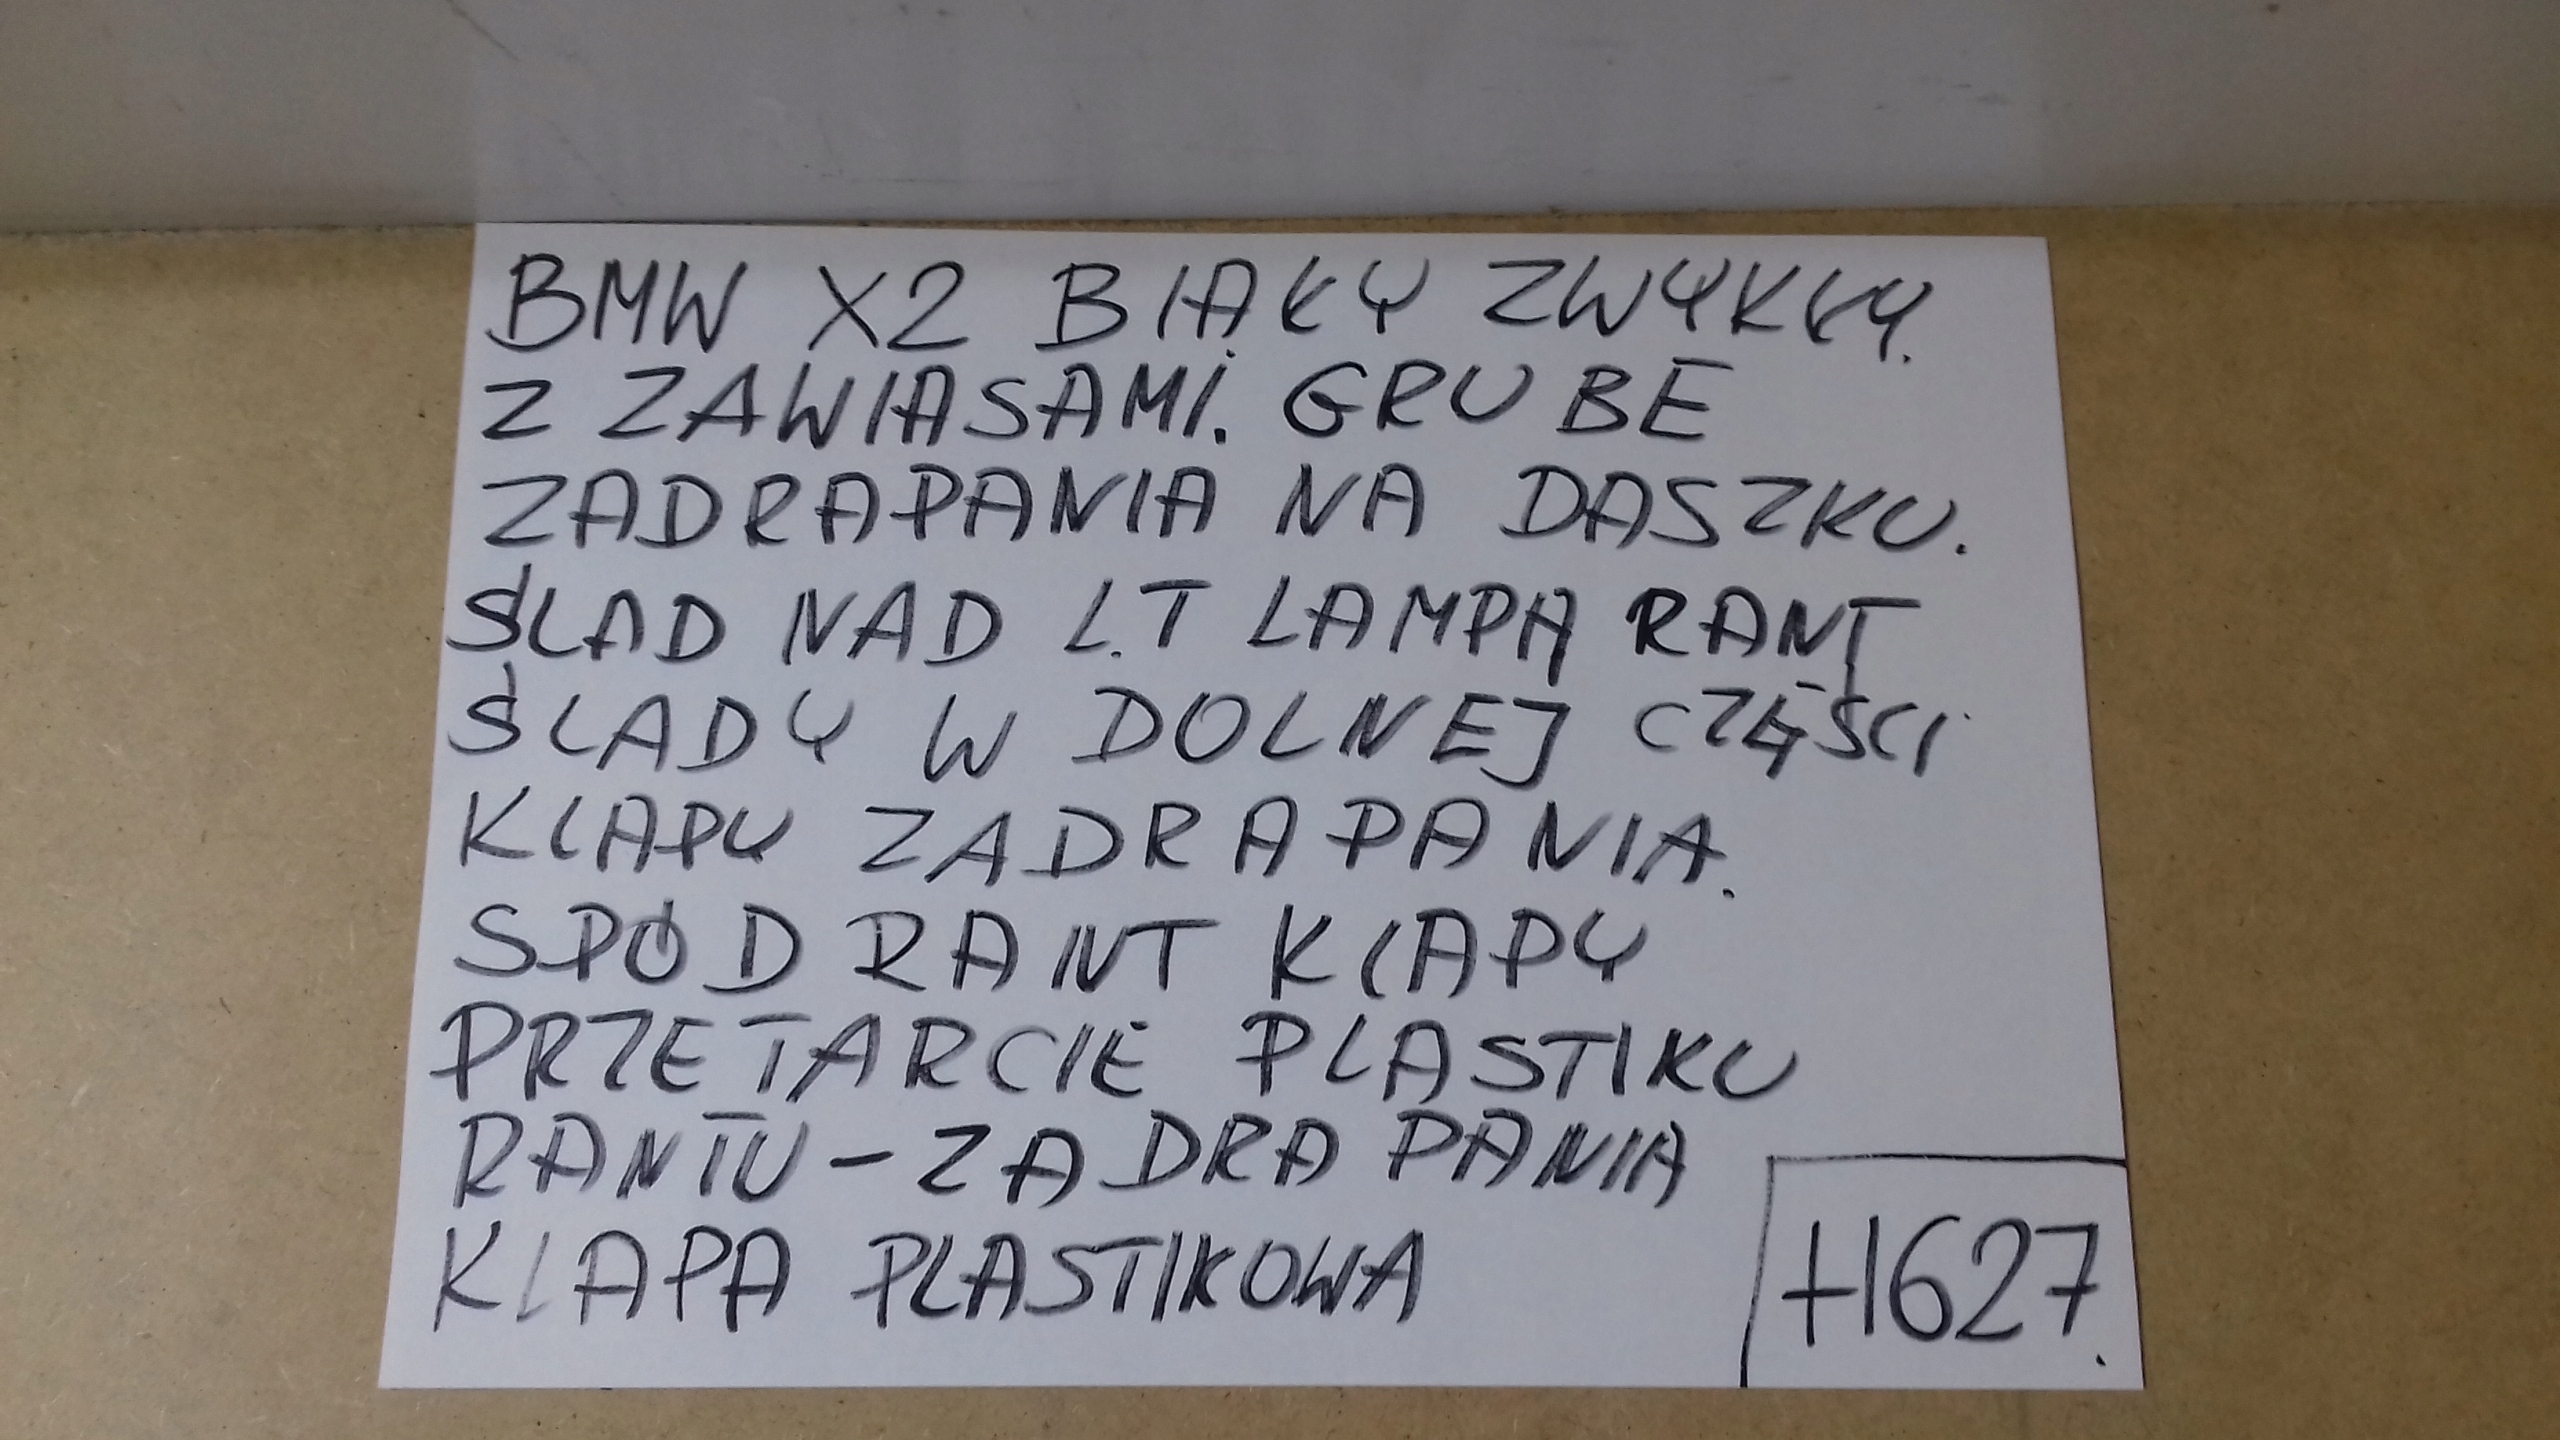 BMW X2 BIAŁY ZWYKŁY.
Z ZAWIASAMI. GRUBE
ZADRAPANIA NA DASZKU.
ŚLAD NAD L.T LAMPĄ RANT
ŚLADY W DOLNEJ CZĘŚCI
KLAPY ZADRAPANIA.
SPÓD RANT KLAPY
PRZETARCIE PLASTIKU
RANTU - ZADRAPANIA
KLAPA PLASTIKOWA
H627.